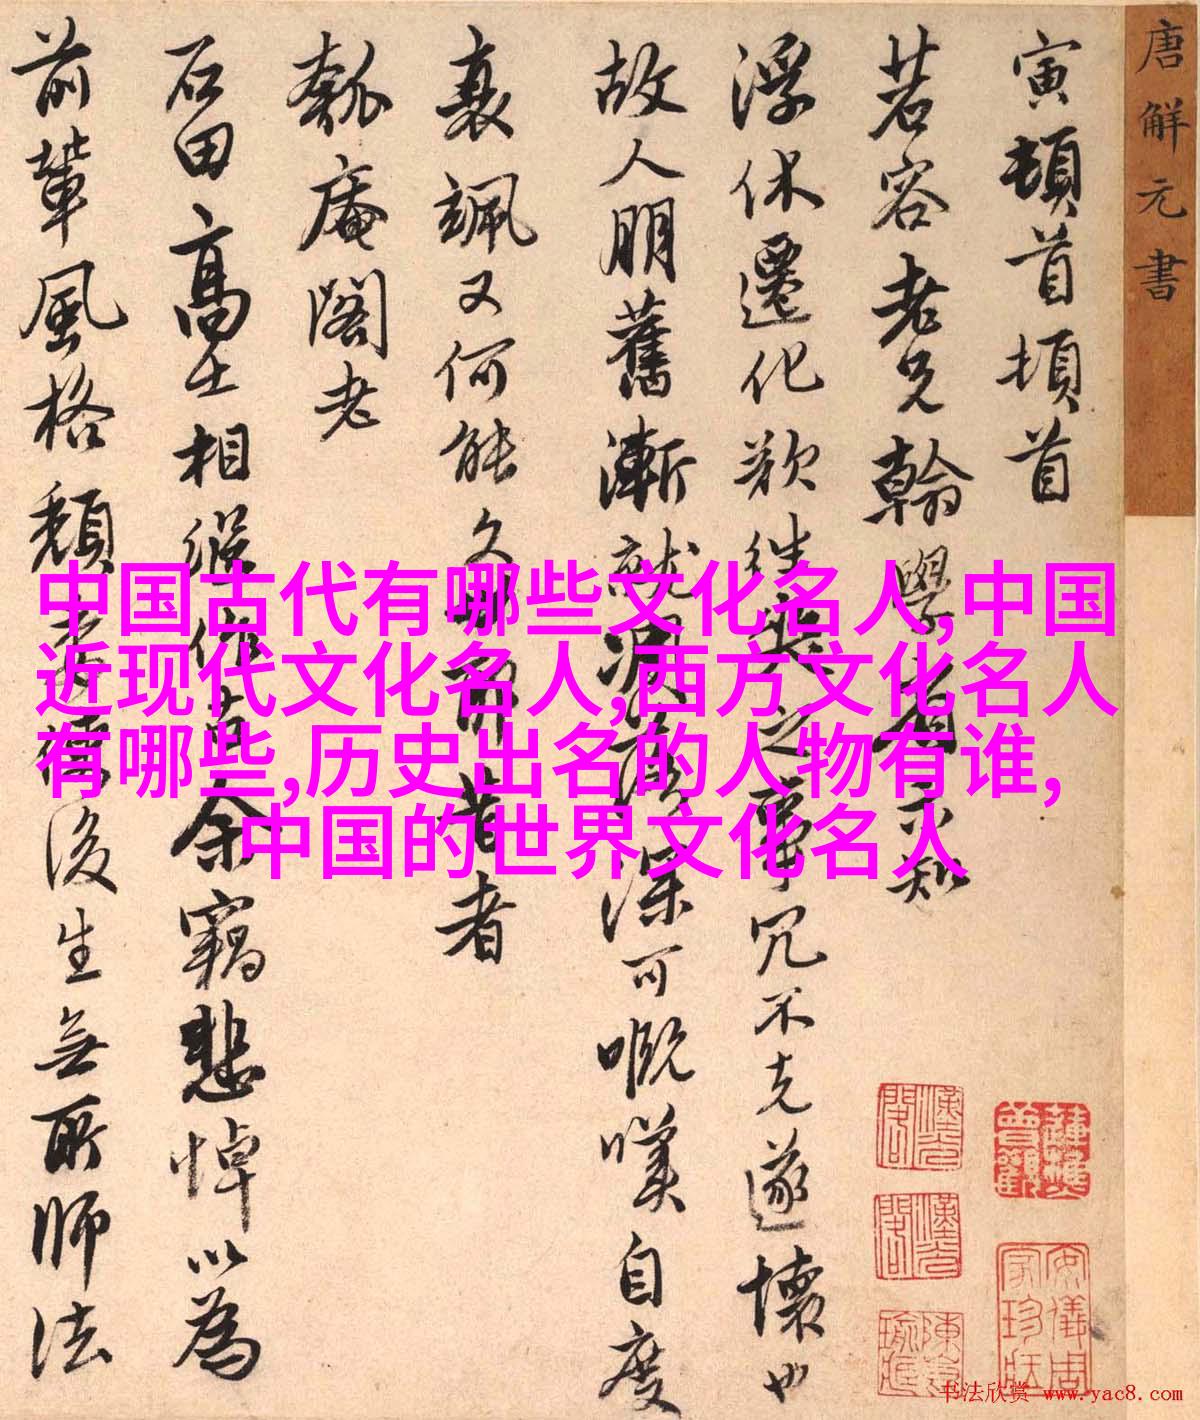 唐解元書
寅頓首頓首
茗容老兄翰學有知
浮休遷化欲往奠之事冗不克遂懷也
故人朋舊漸就凋落深可嘅嘆自度
衰颯又何能久昔者
匏庵閣老
石田高士相繼作古余竊悲悼以為
前輩風格頹後生無所師法
中国古代有哪些文化名人,中国
近现代文化名人,西方文化名人
有哪些,历史出名的人物有谁,
中国的世界文化名人
安儀周家珍藏
书法欣赏 www.yac8.com